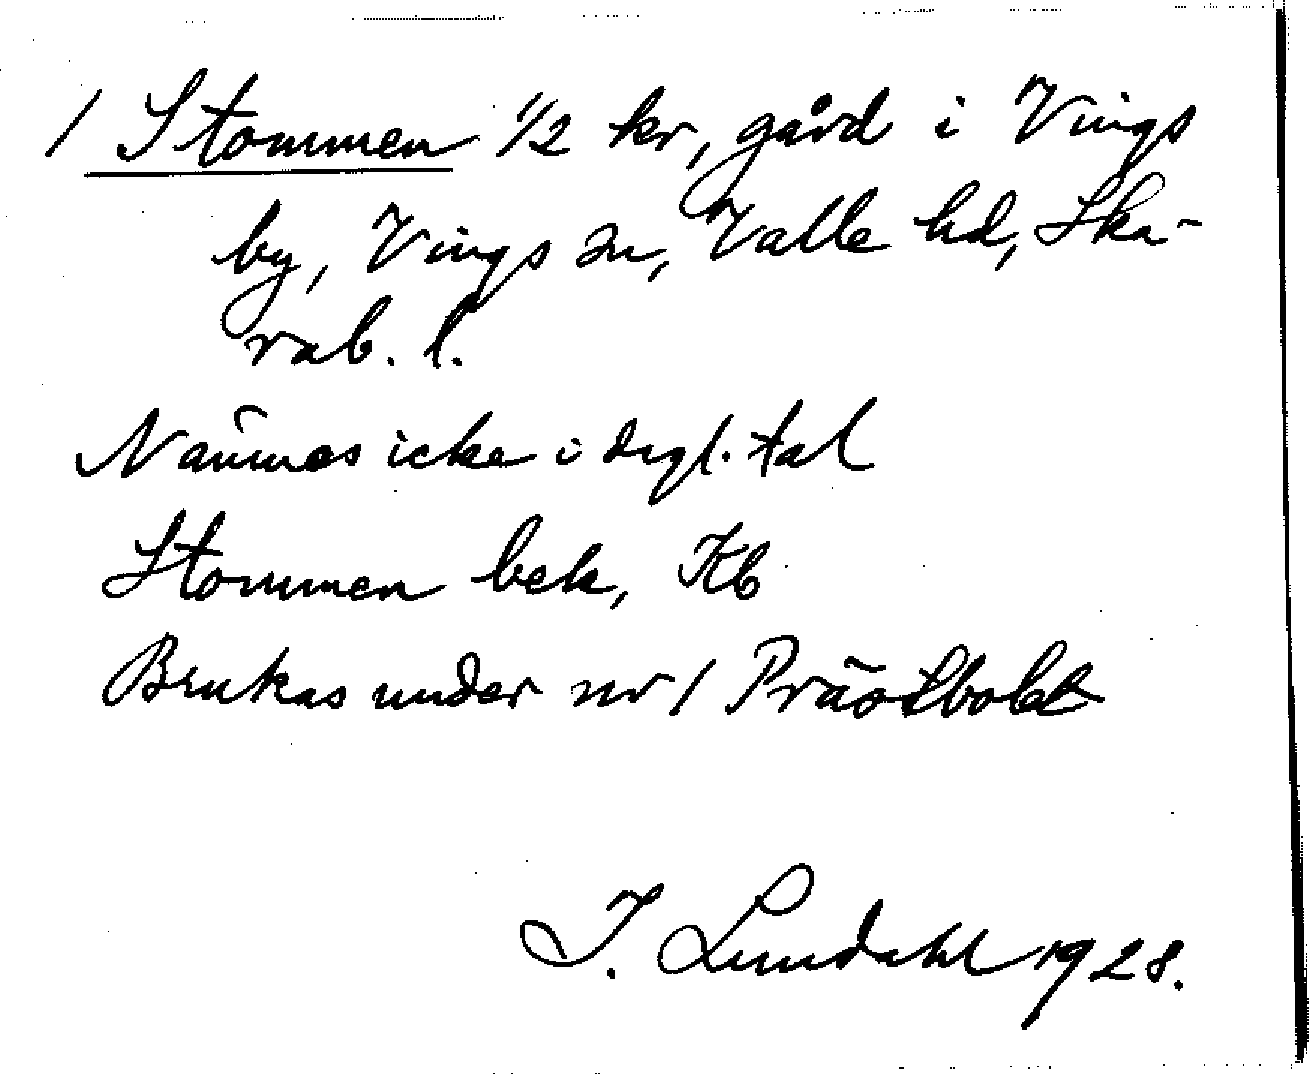 1 Stommen 1/2 kr, gård i Vings
by, Vings sn, Valle hd, Ska-
rab. l.
Nämnes icke i dagl. tal
Stommen bek, Kb
Brukas under nr 1 Prästbolet
I. Lundahl 1928.